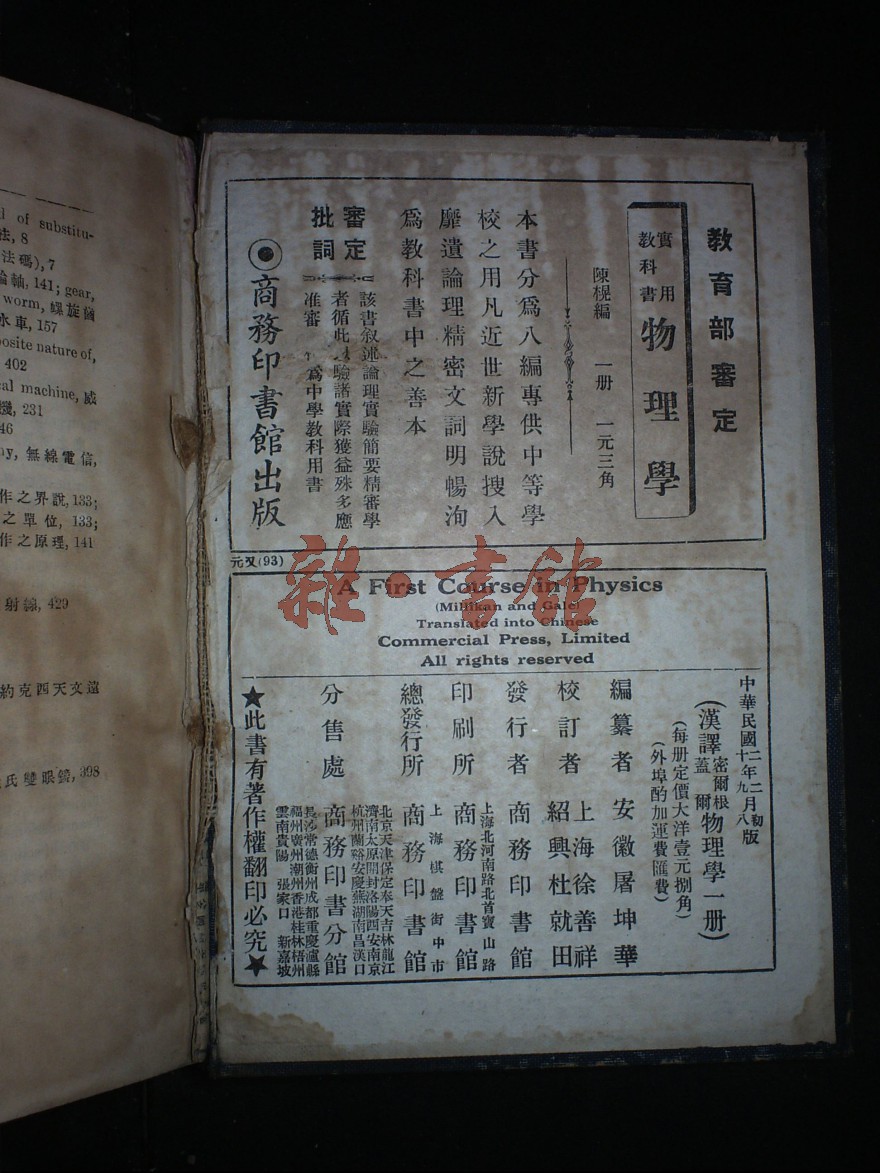 l of substitu-
法, 8
法碼), 7
輪軸, 141; gear,
worm, 螺旋齒
水車, 157
posite nature of,
402
cal machine, 威
機, 231
46
ny, 無線電信,
作之界說, 133;
之單位, 133;
作之原理, 141
射線, 429
約克四天文遠
氏雙眼鏡, 398
教育部審定
實用教科書 物理學
陳榥編 一册 一元三角
本書分爲八編專供中等學
校之用凡近世新學說搜入
靡遺論理精密文詞明暢洵
爲教科書中之善本
審定批詞
該書叙述論理實驗簡要精審學
者循此 驗諸實際獲益殊多應
准審 爲中學教科用書
商務印書館出版
元又(93)
雜·書館
A First Course in Physics
(Millikan and Gale)
Translated into Chinese
Commercial Press, Limited
All rights reserved
中華民國二年二月初版
十二年九月八版
(漢譯密爾根蓋爾物理學一册)
(每册定價大洋壹元捌角)
(外埠酌加運費匯費)
編纂者 安徽屠坤華
校訂者 上海徐善祥 紹興杜就田
發行者 商務印書館
印刷所 上海北河南路北首寶山路 商務印書館
總發行所 上海棋盤街中市 商務印書館
分售處 商務印書分館
北京天津保定奉天吉林龍江
濟南太原開封洛陽西安南京
杭州蘭谿安慶蕪湖南昌漢口
長沙常德衡州成都重慶瀘縣
福州廣州潮州香港桂林梧州
雲南貴陽 張家口 新嘉坡
★此書有著作權翻印必究★